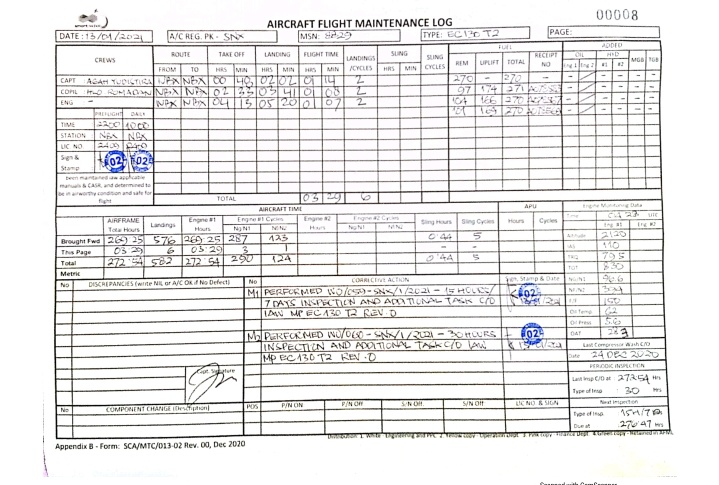 00008
AIRCRAFT FLIGHT MAINTENANCE LOG
DATE: 13/01/2021 A/C REG. PK - SNX MSN: 8829 TYPE: EC 130 T2 PAGE:
CREWS ROUTE TAKE OFF LANDING FLIGHT TIME LANDINGS /CYCLES SLING SLING CYCLES FUEL ADDED
FROM TO HRS MIN HRS MIN HRS MIN HRS MIN REM UPLIFT TOTAL RECEIPT NO OIL HYD MGB TGB
Eng 1 Eng 2 #1 #2
CAPT AGAH YUDISTIRA NBX NBX 00 48 02 02 01 14 2 270 - 270 - - - - -
COPIL NBX NBX 02 33 03 41 01 08 2 97 174 271
ENG - NBX NBX 04 13 05 20 01 07 2 104 166 270
101 169 270
PREFLIGHT DAILY
TIME 2200 1000
STATION NBX NBX
LIC NO. 2409
Sign & Stamp 02 02
been maintained iaw applicable
manuals & CASR, and determined to
be in airworthy condition and safe for
flight
TOTAL 03 29 6
AIRCRAFT TIME APU Engine Monitoring Data
AIRFRAME Total Hours Landings Engine #1 Hours Engine #1 Cycles Engine #2 Hours Engine #2 Cycles Sling Hours Sling Cycles Hours Cycles
Ng/N1 Nf/N2 Ng/N1 Nf/N2
Time UTC
Eng. #1 Eng. #2
Brought Fwd 269:25 576 269:25 287 123 0:44 5
This Page 03:29 6 03:29 3 1 - -
Total 272:54 582 272:54 290 124 0:44 5
Altitude 2120
IAS 110
TRQ 79.5
TOT 830
Ng/N1 96.6
Nf/N2 394
F/F 150
Oil Temp 62
Oil Press 3.6
OAT
Metric
No DISCREPANCIES (write NIL or A/C OK if No Defect) No CORRECTIVE ACTION Sign, Stamp & Date
M1 PERFORMED WO/059-SNX/1/2021 - 15 HOURS/
7 DAYS INSPECTION AND ADDITIONAL TASK C/O
IAW MP EC 130 T2 REV. 0
02
M2 PERFORMED WO/060 - SNX/1/2021 - 30 HOURS
INSPECTION AND ADDITIONAL TASK C/O IAW
MP EC 130 T2 REV. 0
02
Capt. Signature
Last Compressor Wash C/O
Date 24 DEC 2020
PERIODIC INSPECTION
Last Insp C/O at : 272:54 Hrs
Type of Insp. : 30 Hrs
Next Inspection
Type of Insp. 15H/7D
Due at : 276:47 Hrs
No COMPONENT CHANGE (Description) POS P/N ON P/N Off S/N On S/N Off LIC NO. & SIGN
Distribution: 1. White - Engineering and PPC 2. Yellow copy - Operation Dept 3. Pink copy - Finance Dept 4. Green copy - Retained in AFML
Appendix B - Form: SCA/MTC/013-02 Rev. 00, Dec 2020